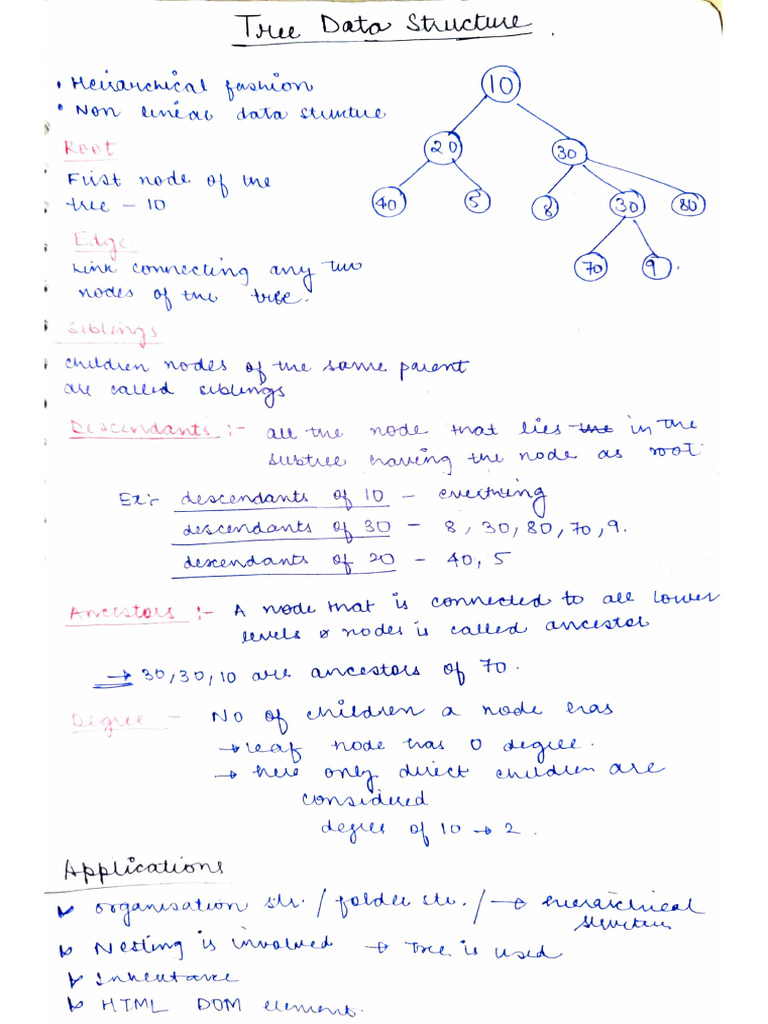 Tree Data Structure.
• Heirarchical fashion
• Non linear data structure
10
20
30
40
5
8
30
80
70
9
Root
First node of the
tree - 10
Edge
Link connecting any two
nodes of the tree.
Siblings
children nodes of the same parent
are called siblings
Descendants :- all the node that lies the in the
subtree having the node as root.
Ex:- descendants of 10 - everthing
descendants of 30 - 8, 30, 80, 70, 9.
descendants of 20 - 40, 5
Ancestors :- A node that is connected to all lower
levels nodes is called ancestor
→ 30, 30, 10 are ancestors of 70.
Degree - No of children a node has
→ leaf node has 0 degree.
→ here only direct children are
considered
degree of 10 → 2.
Applications
organisation str. / folder str. / → hierarchical
structure
Nesting is involved → Tree is used
Inheritance
HTML DOM element.